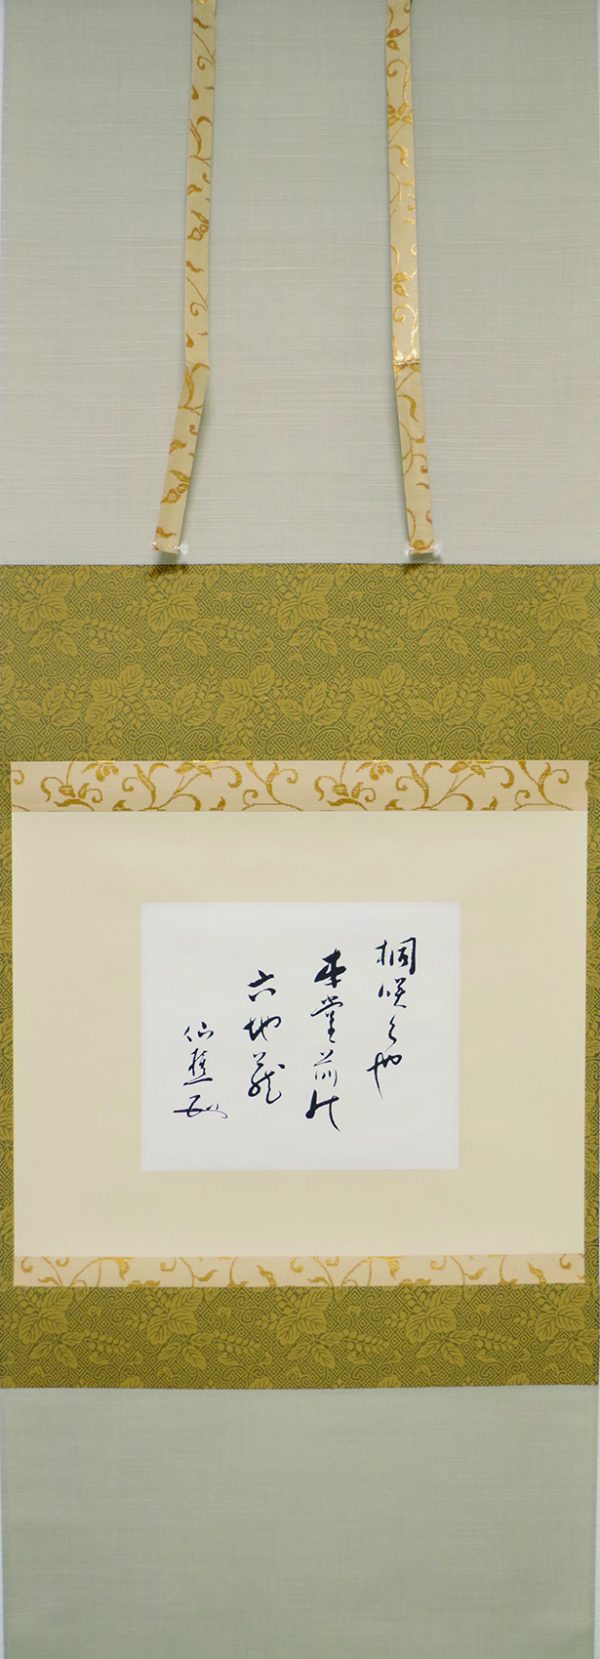 桐咲くや
本堂前の
六地蔵
仙蕉